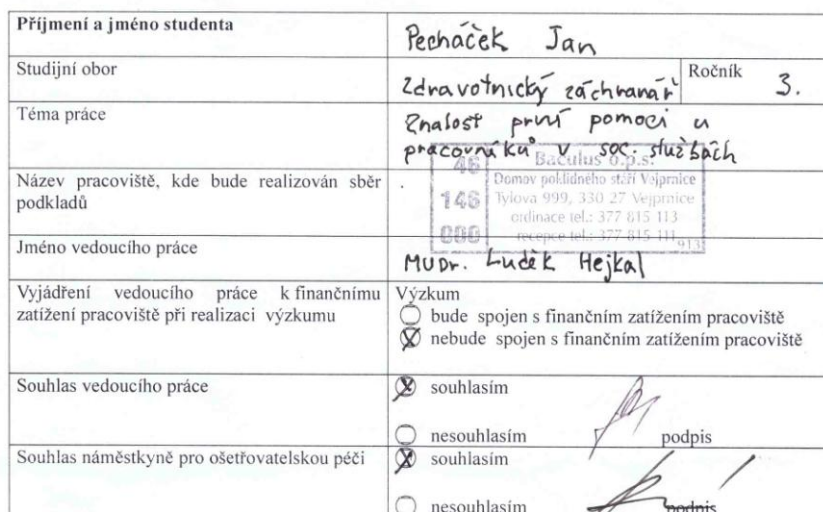 Příjmení a jméno studenta
Pecháček Jan
Studijní obor
Zdravotnický záchranář
Ročník
3.
Téma práce
Znalost první pomoci u
pracovníků v soc. službách
Název pracoviště, kde bude realizován sběr
podkladů
46
146
000
Baculus o.p.s.
Domov poklidného stáří Vejprnice
Tylova 999, 330 27 Vejprnice
ordinace tel.: 377 815 113
recepce tel.: 377 815 111
913
Jméno vedoucího práce
MUDr. Luděk Hejkal
Vyjádření vedoucího práce k finančnímu
zatížení pracoviště při realizaci výzkumu
Výzkum
bude spojen s finančním zatížením pracoviště
nebude spojen s finančním zatížením pracoviště
Souhlas vedoucího práce
souhlasím
nesouhlasím podpis
Souhlas náměstkyně pro ošetřovatelskou péči
souhlasím
nesouhlasím podpis